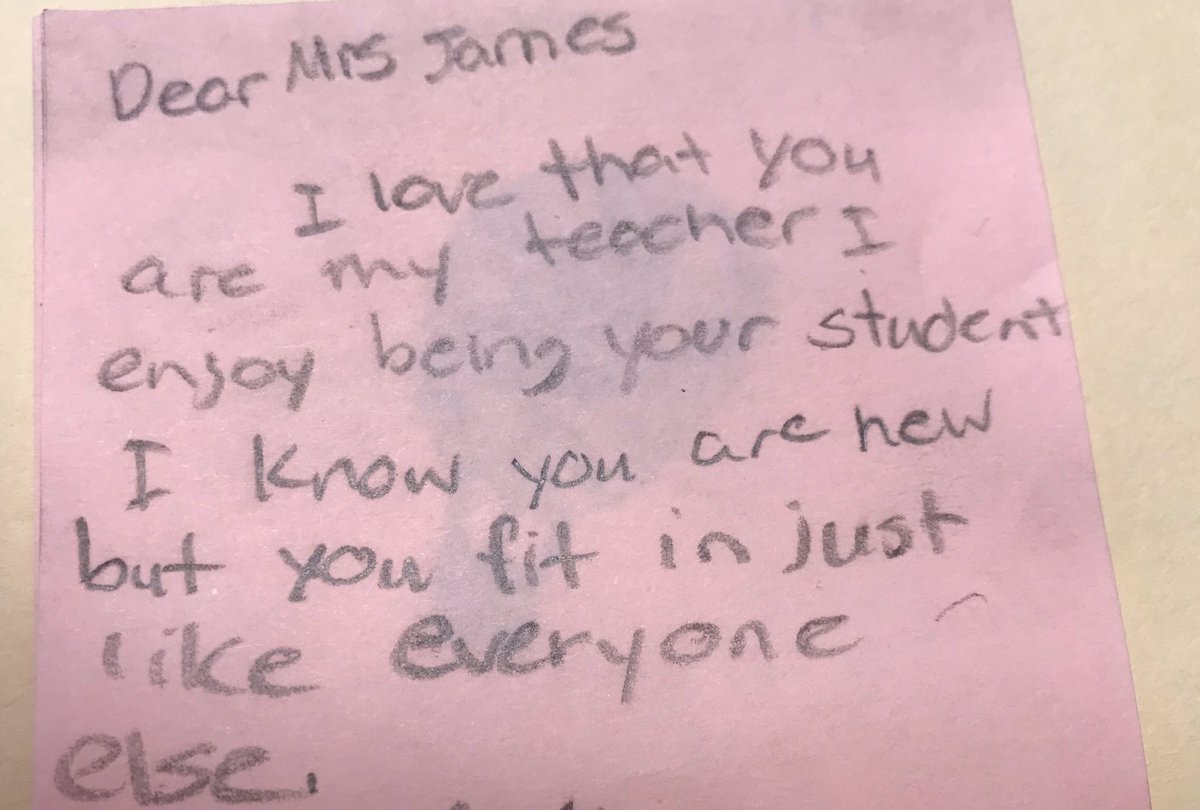 Dear Mrs James
I love that you
are my teacher I
enjoy being your student
I know you are new
but you fit in just
like everyone
else.